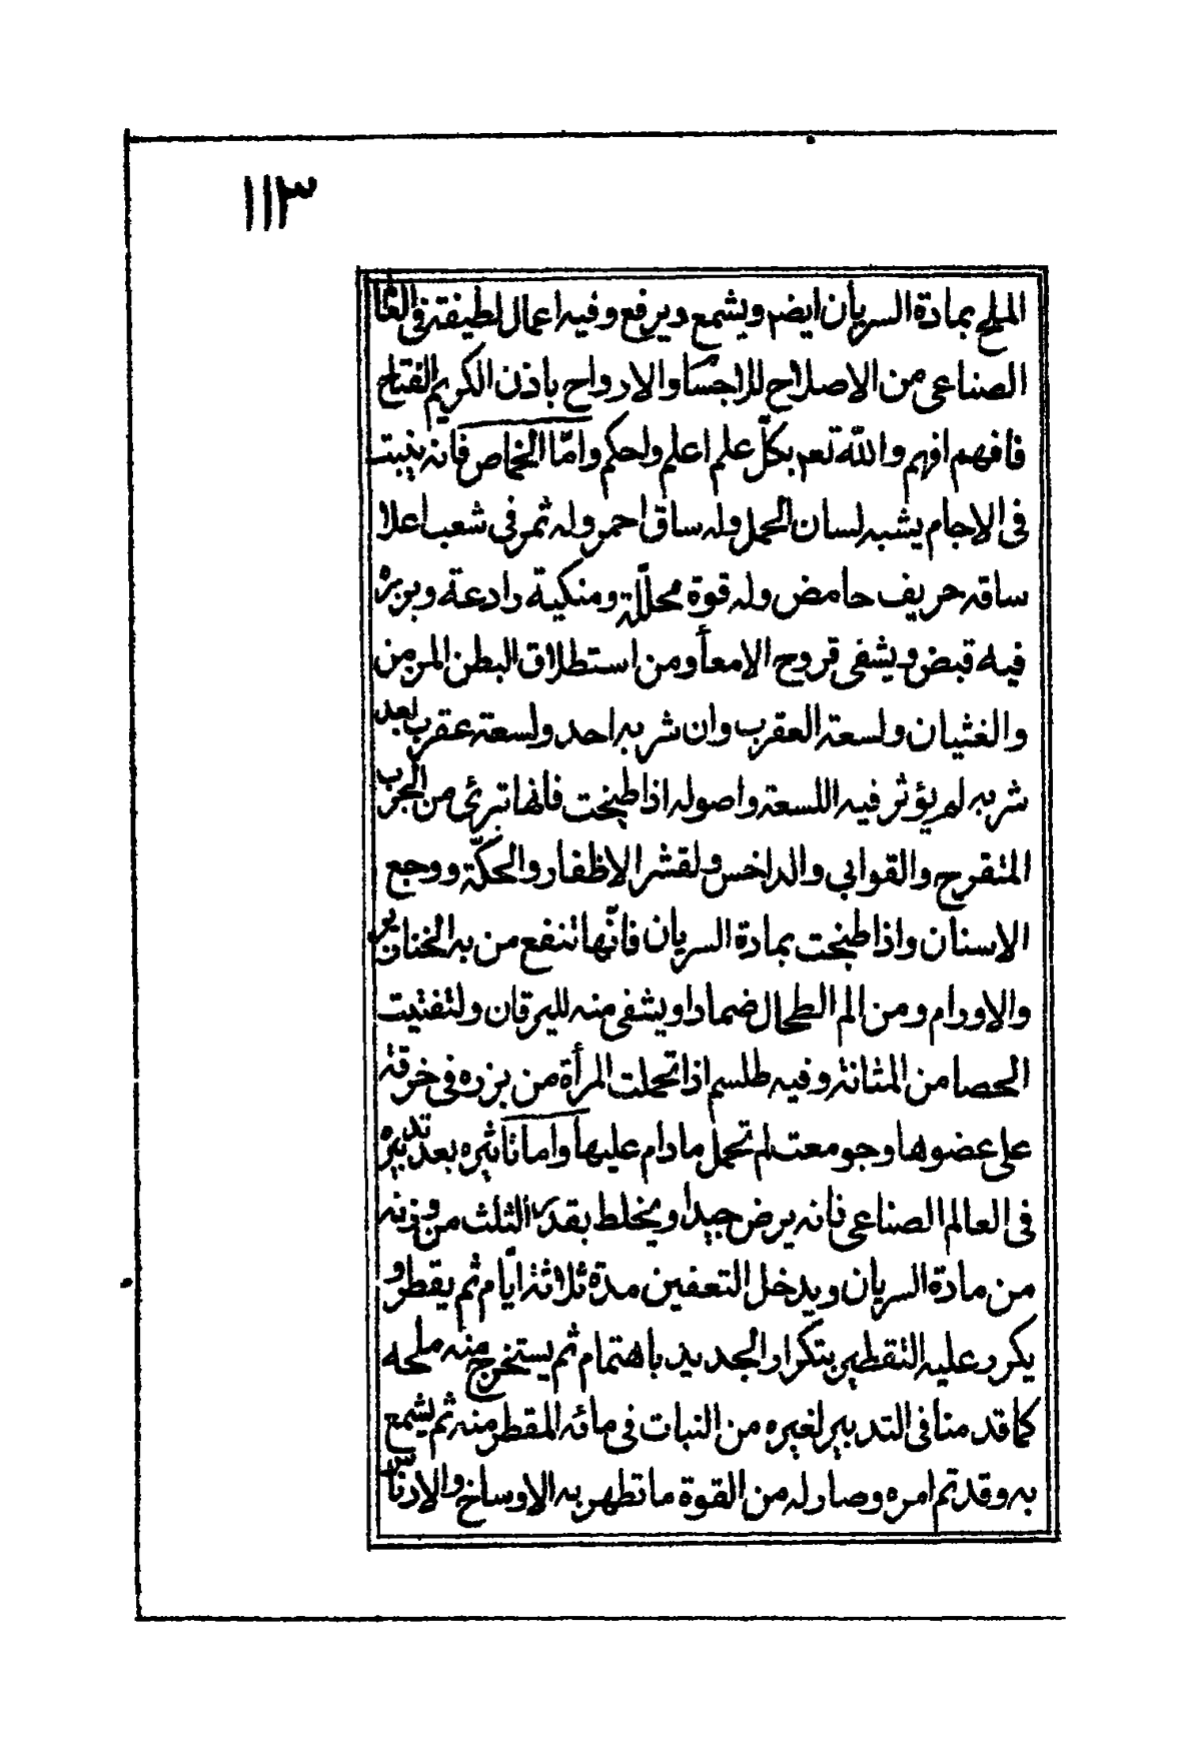 ١١٣
الملح بمادة السريان ايضم ويشمع ويرفع وفيه اعمال لطيفته فى العالم
الصناعى من الاصلاح للاجسا والارواح باذن الكريم الفتاح
فافهم افهم والله تعم بكلّ علم اعلم ولحكم وامّا الخماص فانه ينبت
فى الاجام يشبه لسان الحمل وله ساق احمر وله ثمر فى شعب اعلا
ساقه حريف حامض وله قوة محللّة ومنكية رادعة وبزره
فيه قبض ويشفى قروح الامعأ ومن استطلاق البطن المزمن
والغثيان ولسعة العقرب وان شربه احد ولسعته عقرب بعد
شربه لم يؤثر فيه اللسعة واصوله اذا طبخت فانها تبرئ من الجرب
المتقرح والقوابي والداخس ولقشر الاظفار والحكّة ووجع
الاسنان واذا طبخت بمادة السريان فانّها تنفع من به الخنازير
والاورام ومن الم الطحال ضمادا ويشفى منه لليرقان ولتفتيت
الحصا من المثانة وفيه طلسم اذا تحملت المرأة من بزره فى خرقة
على عضوها وجومعت لم تحمل مادام عليها واما تاثيره بعد تدبيره
فى العالم الصناعى فانه يرض جيدا ويخلط بقدر الثلث من وزنه
من مادة السريان ويدخل التعفين مدة ثلاثة ايّام ثم يقطر و
يكرر عليه التقطير بتكرار الجديد باهتمام ثم يستخرج منه ملحه
كما قدمنا فى التدبير لغيره من النبات فى مائه المقطر منه ثم يشمع
به وقد تم امره وصار له من القوة ما تطهر به الاوساخ والادناس